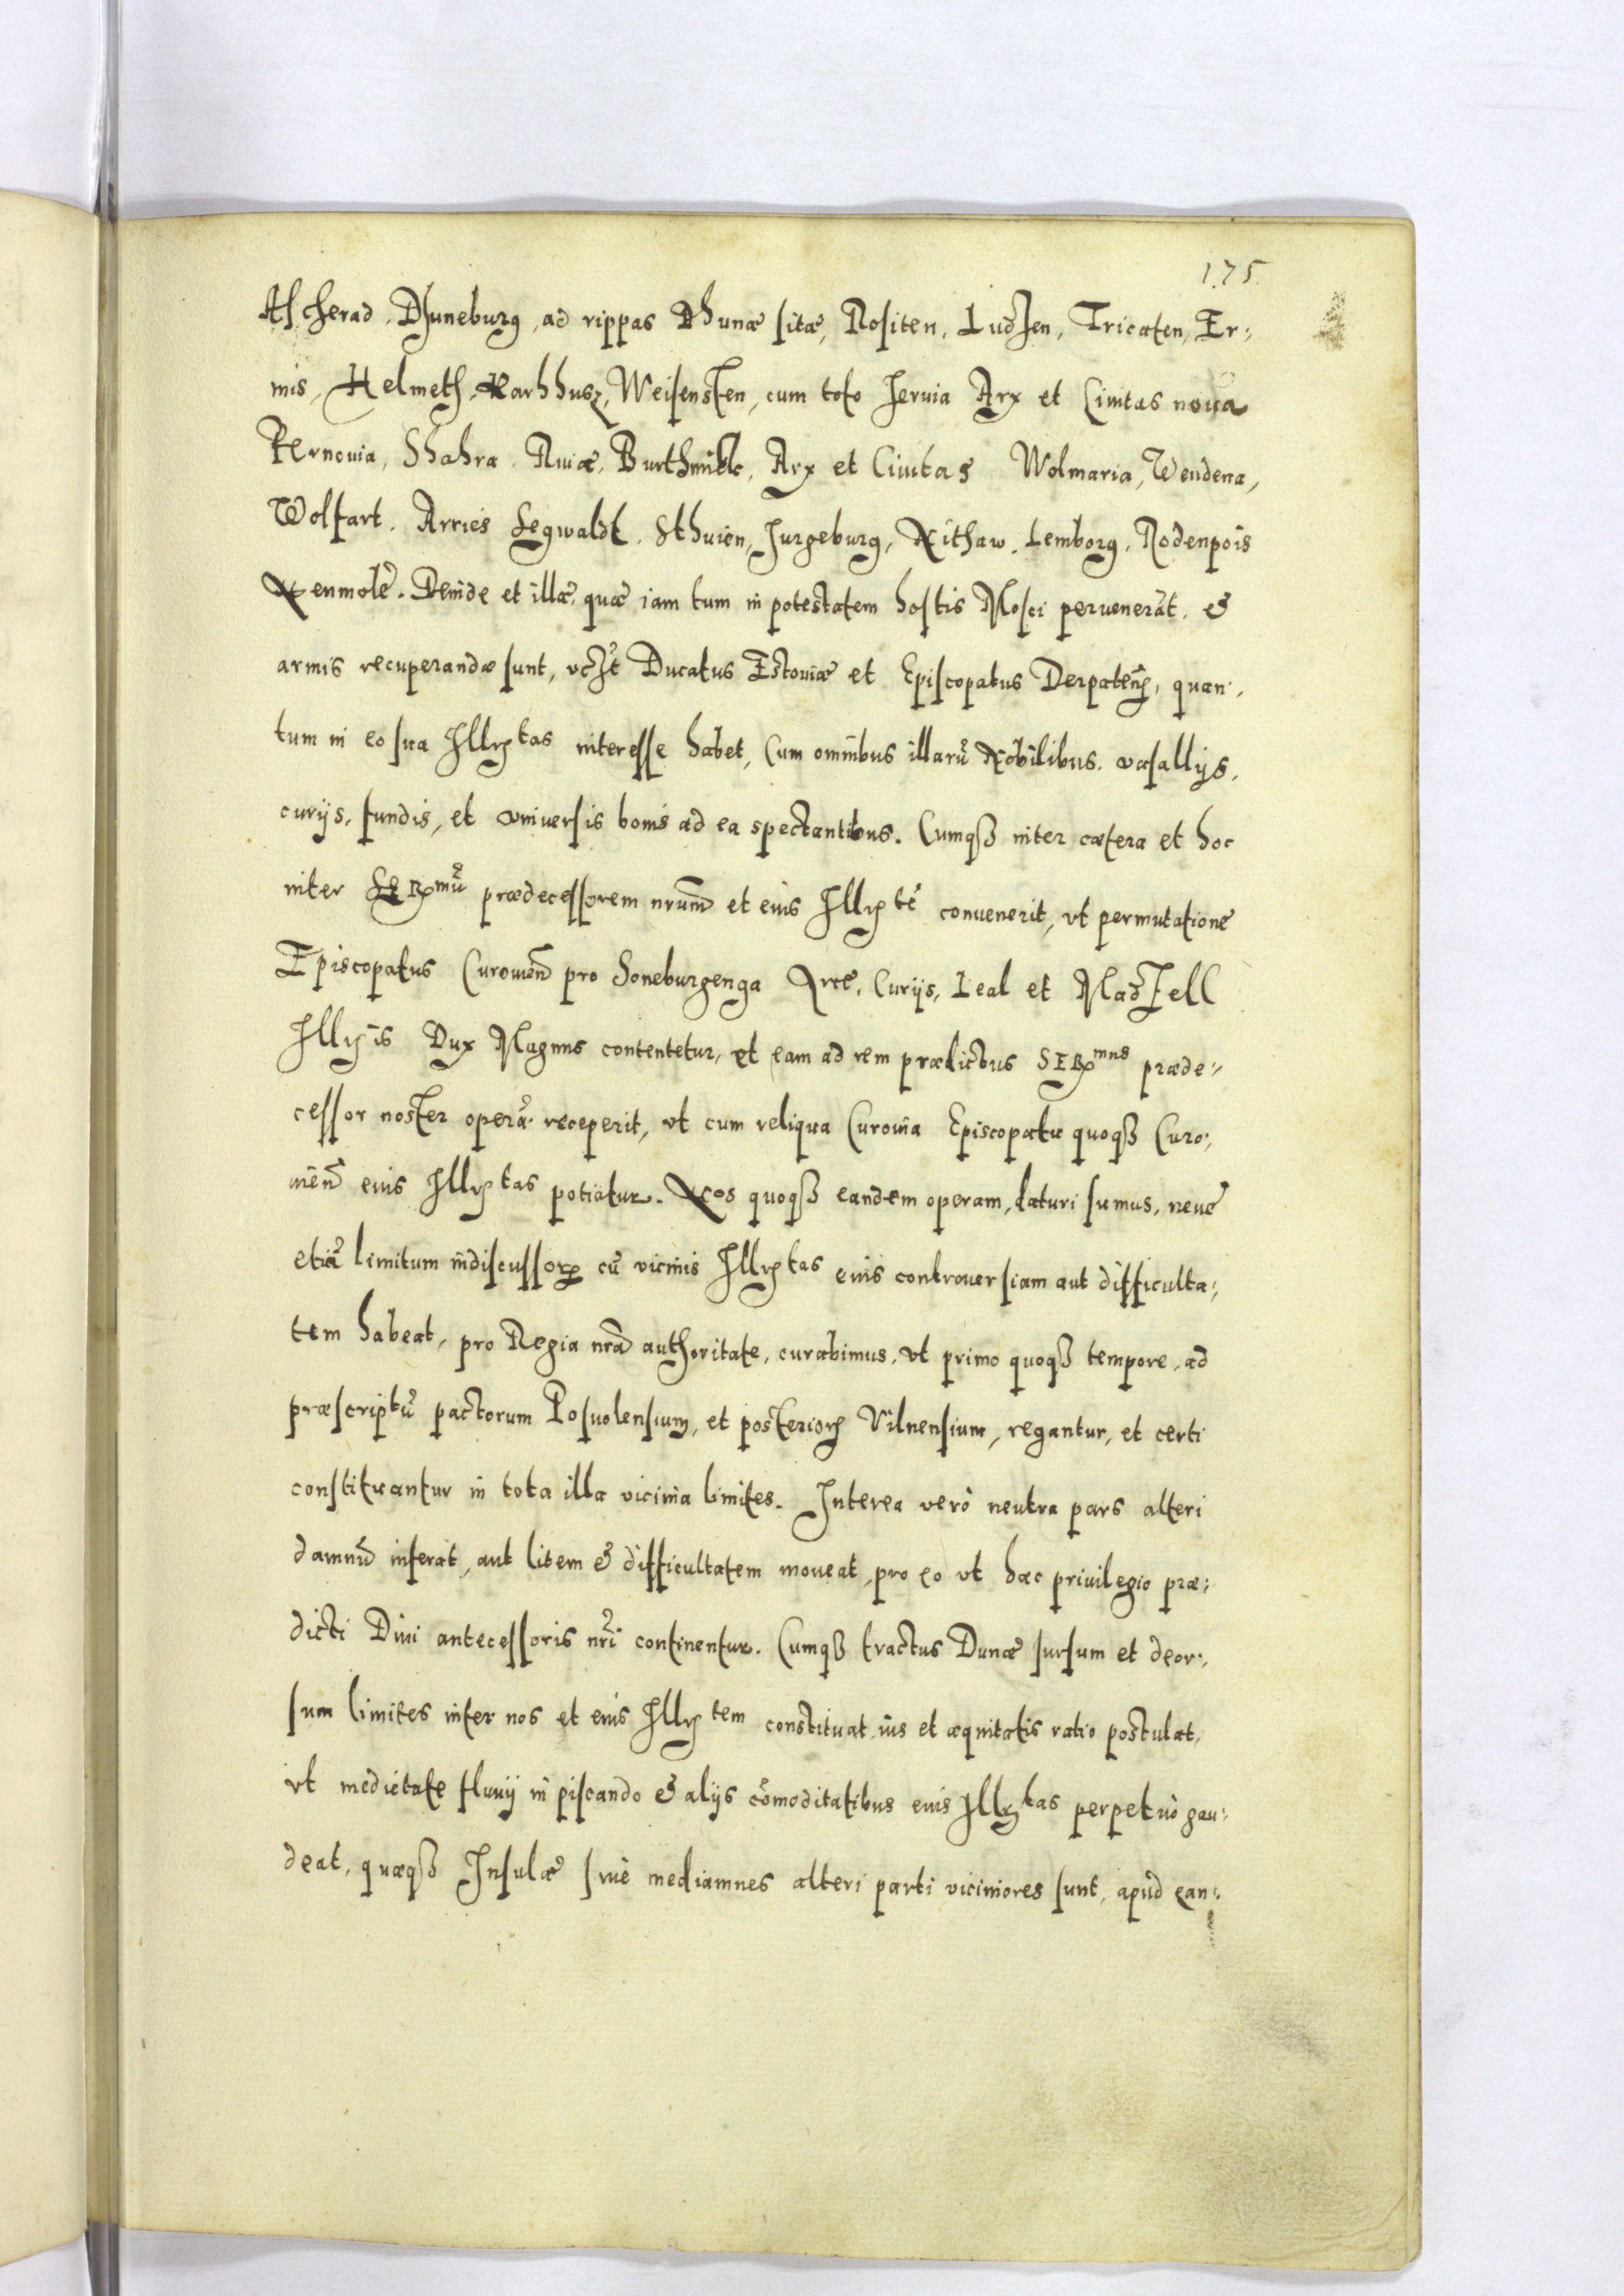 175.
Ascherad, Dhuneburg, ad rippas Dhunæ sitæ, Rositen, Ludzen, Tricaten, Er:
mis, Helmeth, Karhhusz, Weisensten, cum toto Jeruia Arx et Ciuitas noua
Pernouia, Shahra, Ruiæ, Burthnikk, Arx et Ciuitas Wolmaria, Wendena,
Wolfart, Arries Segwaldt, Sthuien, Jurgeburg, Nithaw, Lemborg, Rodenpois
Nenmolẽ. Deinde et illæ, quæ iam tum in potestatem hostis Mosci peruenerãt, &
armis recuperandæ sunt, vczt Ducatus Estoniæ et Episcopatus Derpateñ, quan:
tum in eo sua Illrtas interesse habet, Cum omnibus illarũ Nobilibus, vasallijs,
curijs, fundis, et vniuersis bonis ad ea spectantibus. Cumqß inter cætera et hoc
inter SERmũ prædecessorem nrum̃ et eius Illrtẽ conuenerit, vt permutatione
Episcopatus Curonieñ pro Soneburgenga Arcẽ, Curijs, Leal et Madzell
Illris Dux Magnus contentetur, et eam ad rem prædictus SERmns præde:
cessor noster operã receperit, vt cum reliqua Curonia Episcopatu quoqß Curo:
nieñ eius Illrtas potiatur. Nos quoqß eandem operam, daturi sumus, neuẽ
etiã limitum indiscussorʒ cũ vicinis Illrtas eius controuersiam aut difficulta:
tem habeat, pro Regia nrã authoritate, curabimus, vt primo quoqß tempore, ad
præscriptũ pactorum Posuolensium, et posterior Vilnensium, regantur, et certi
constituantur in tota illa vicinia limites. Interea verò neutra pars alteri
damnũ inferat, aut litem & difficultatem moueat, pro eo vt hæc priuilegio præ:
dicti Diui antecessoris nrĩ continentur. Cumqß tractus Dunæ sursum et deor:
sum limites inter nos et eius Illrtem constituat, ius et æquitatis ratio postulat,
vt medietate fluuij in piscando & alijs cõmoditatibus eius Illrtas perpetuò gau:
deat, quæqß Insulæ siuè mediamnes alteri parti viciniores sunt, apud ean: